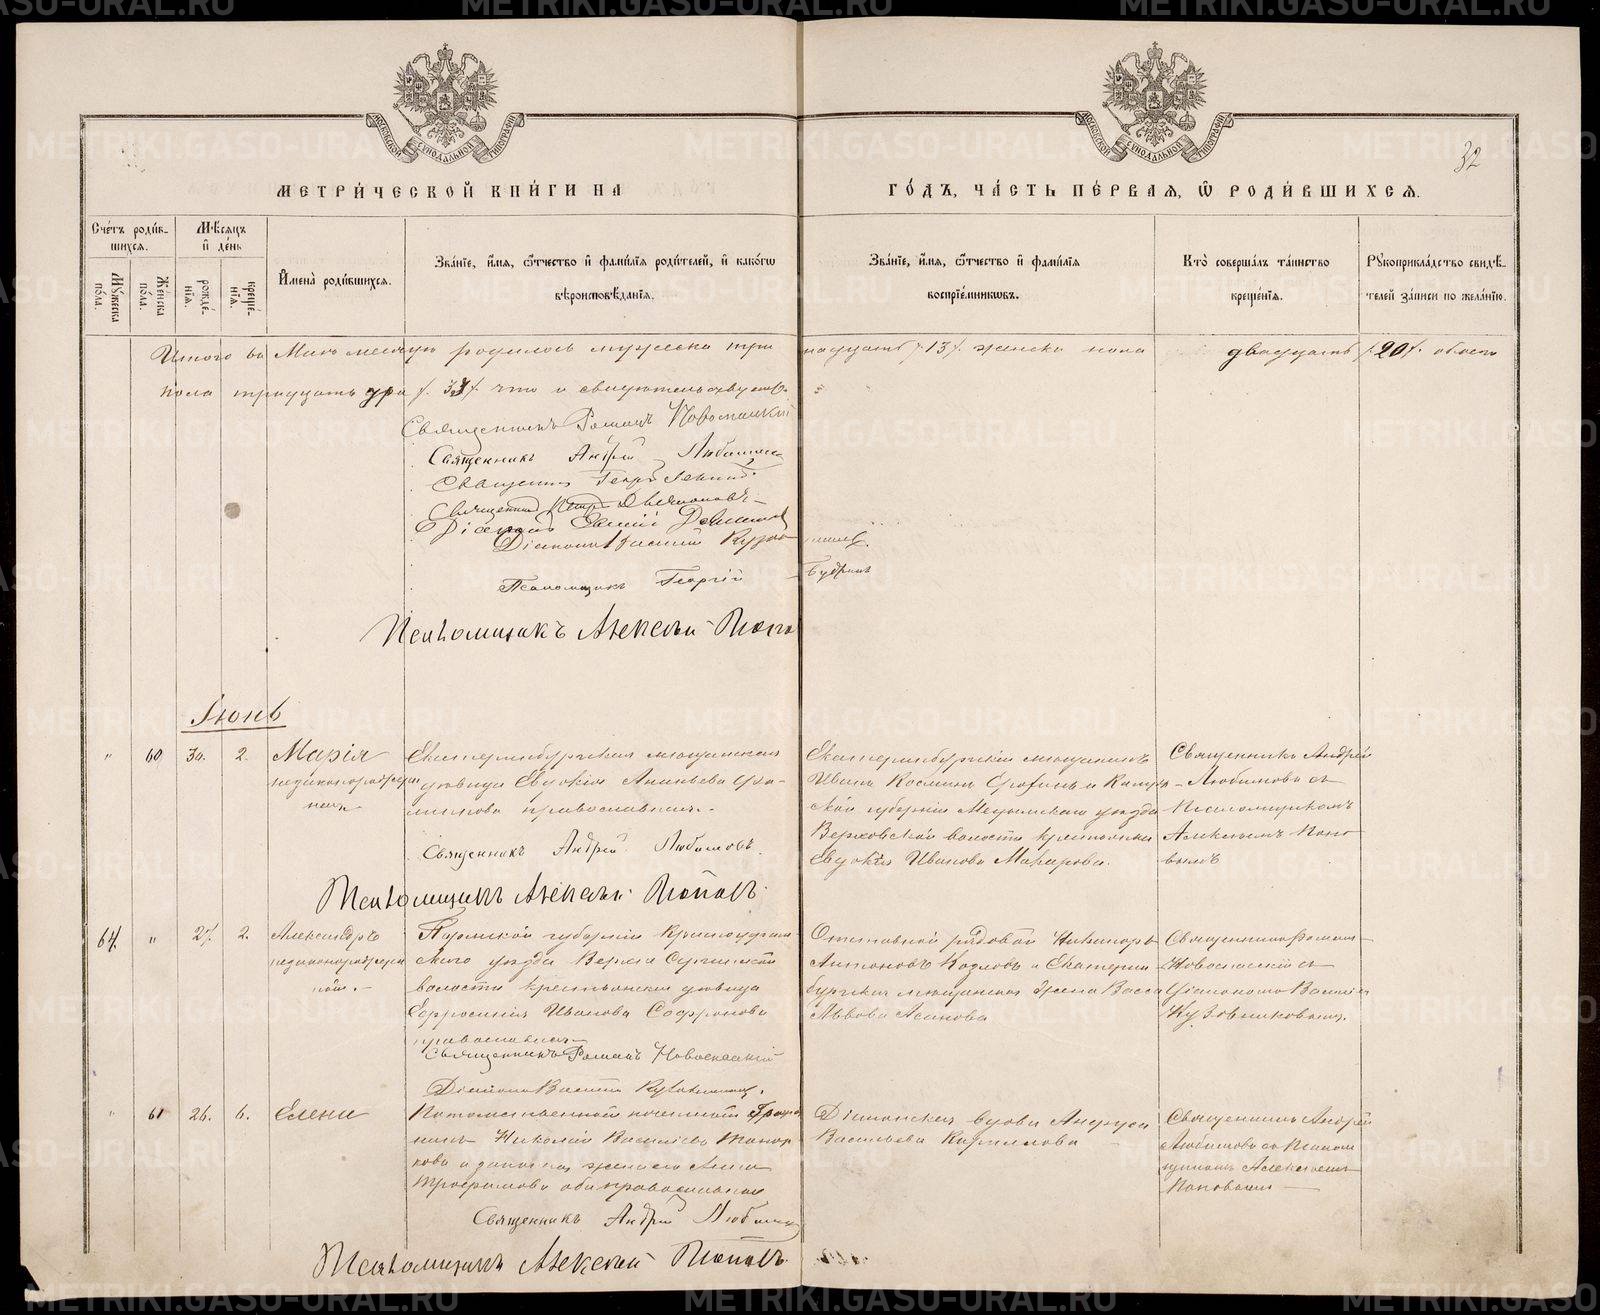 МОСКОВСКОЙ СѴНОДАЛЬНОЙ ТИПОГРАФІИ
МОСКОВСКОЙ СѴНОДАЛЬНОЙ ТИПОГРАФІИ
32
МЕТРИ́ЧЕСКОЙ КНИ́ГИ НА
ГО́ДЪ, ЧА́СТЬ ПЕ́РВАЯ, Ѽ РОДИ́ВШИХСЯ.
Сче́тъ роди́в-
шихся.
Мꙋ́жеска по́ла.
Же́нска по́ла.
Мѣ́сяцъ и҆ де́нь
рожде́-нїя.
креще́-нїя.
И҆мена̀ роди́вшихся.
Зва́нїе, и҆́мя, ѻ҆́тчество и҆ фами́лїя роди́телей, и҆ како́гѡ
вѣроисповѣ́данїя.
Зва́нїе, и҆́мя, ѻ҆́тчество и҆ фами́лїя
воспрїе́мникѡвъ.
Кто̀ соверша́лъ та́инство
креще́нїя.
Рꙋкоприкла́дство свидѣ́-
телей за́писи по жела́нїю.
Итого въ Маѣ месяцѣ родилось мужеска три надцать /13/. женска пола двадцать /20/. обоего
пола тридцать три /33/. что и свидѣтельствуемъ
Священникъ Романъ Новоспасскій
Священникъ Андрей Любимовъ
Священникъ Георгій
Священникъ Петръ
Діаконъ
Діаконъ Василій Кузовниковъ
Псаломщикъ Георгій Будринъ
Псаломщикъ Алексѣй Поповъ
Іюнь
" 60 30. 2. Марія
незаконнорожден
ная
Екатеринбургская мещанская
дѣвица Евдокія Ананьева
православная.
Священникъ Андрей Любимовъ.
Псаломщикъ Алексѣй Поповъ.
Екатеринбургскій мещанинъ
Иванъ Косминъ Ерофинъ и Калуж
ской губерніи Медынскаго уѣзда
Верховской волости крестьянка
Евдокія Иванова Макарова.
Священникъ Андрей
Любимовъ съ
Псаломщикомъ
Алексѣемъ Попо
вымъ
64. " 27. 2. Александръ
незаконнорожден
ный.
Пермской губерніи Красноуфим
скаго уѣзда Верхне Сергинской
волости крестьянская дѣвица
Ефросинія Иванова Софронова
православная
Священникъ Романъ Новоспасскій
Діаконъ Василій Кузовниковъ.
Отставной рядовой Никаноръ
Антоновъ Козловъ и Екатерин
бургская мещанская жена Васса
Львова Асанова
Священникъ Романъ
Новоспасскій съ
Діакономъ Василіемъ
Кузовниковымъ.
" 61 26. 6. Елена
Потомственный почетный Гражда
нинъ Николай Василіевъ Топор
ковъ и законная жена его Анна
Трофимова оба православные
Священникъ Андрей Любимовъ
Псаломщикъ Алексѣй Поповъ.
Діаконская вдова
Васильева Кириллова
Священникъ Андрей
Любимовъ съ Псалом
щикомъ Алексѣемъ
Поповымъ
METRIKI.GASO-URAL.RU